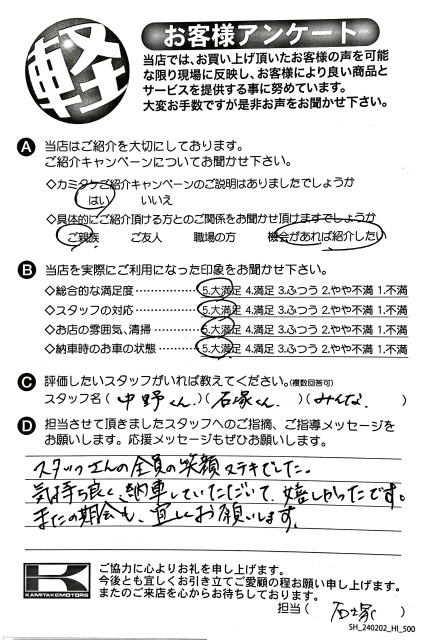 軽
お客様アンケート
当店では、お買い上げ頂いたお客様の声を可能
な限り現場に反映し、お客様により良い商品と
サービスを提供する事に努めています。
大変お手数ですが是非お声をお聞かせ下さい。
A 当店はご紹介を大切にしております。
ご紹介キャンペーンについてお聞かせ下さい。
◇カミタケご紹介キャンペーンのご説明はありましたでしょうか
はい いいえ
◇具体的にご紹介頂ける方とのご関係をお聞かせ頂けますでしょうか
ご親族 ご友人 職場の方 機会があれば紹介したい
B 当店を実際にご利用になった印象をお聞かせ下さい。
◇総合的な満足度……………5.大満足 4.満足 3.ふつう 2.やや不満 1.不満
◇スタッフの対応……………5.大満足 4.満足 3.ふつう 2.やや不満 1.不満
◇お店の雰囲気、清掃………5.大満足 4.満足 3.ふつう 2.やや不満 1.不満
◇納車時のお車の状態………5.大満足 4.満足 3.ふつう 2.やや不満 1.不満
C 評価したいスタッフがいれば教えてください。(複数回答可)
スタッフ名(中野くん)(石塚くん)(みんな)
D 担当させて頂きましたスタッフへのご指摘、ご指導メッセージを
お願いします。応援メッセージもぜひお願いします。
スタッフさんの全員の笑顔ステキでした。
気持ち良く、納車していただいて、嬉しかったです。
またの期会も、宜しくお願いします。
KAMITAKEMOTORS
ご協力に心よりお礼を申し上げます。
今後とも宜しくお引き立てご愛顧の程お願い申し上げます。
またのご来店を心からお待ちしております。
担当(石塚)
SH_240202_HI_500